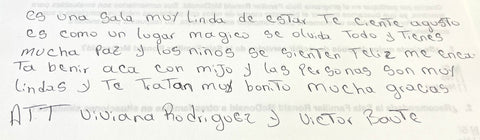 es una sala muy linda de estar Te ciente agusto
es como un lugar magico se oluida Todo y Tienes
mucha Paz y los niños se sienten Feliz me enca
Ta benir aca con mijo y las Personas son muy
lindas y Te Tratan muy bonito mucha gracas
ATT Viviana Rodriguez y Victor